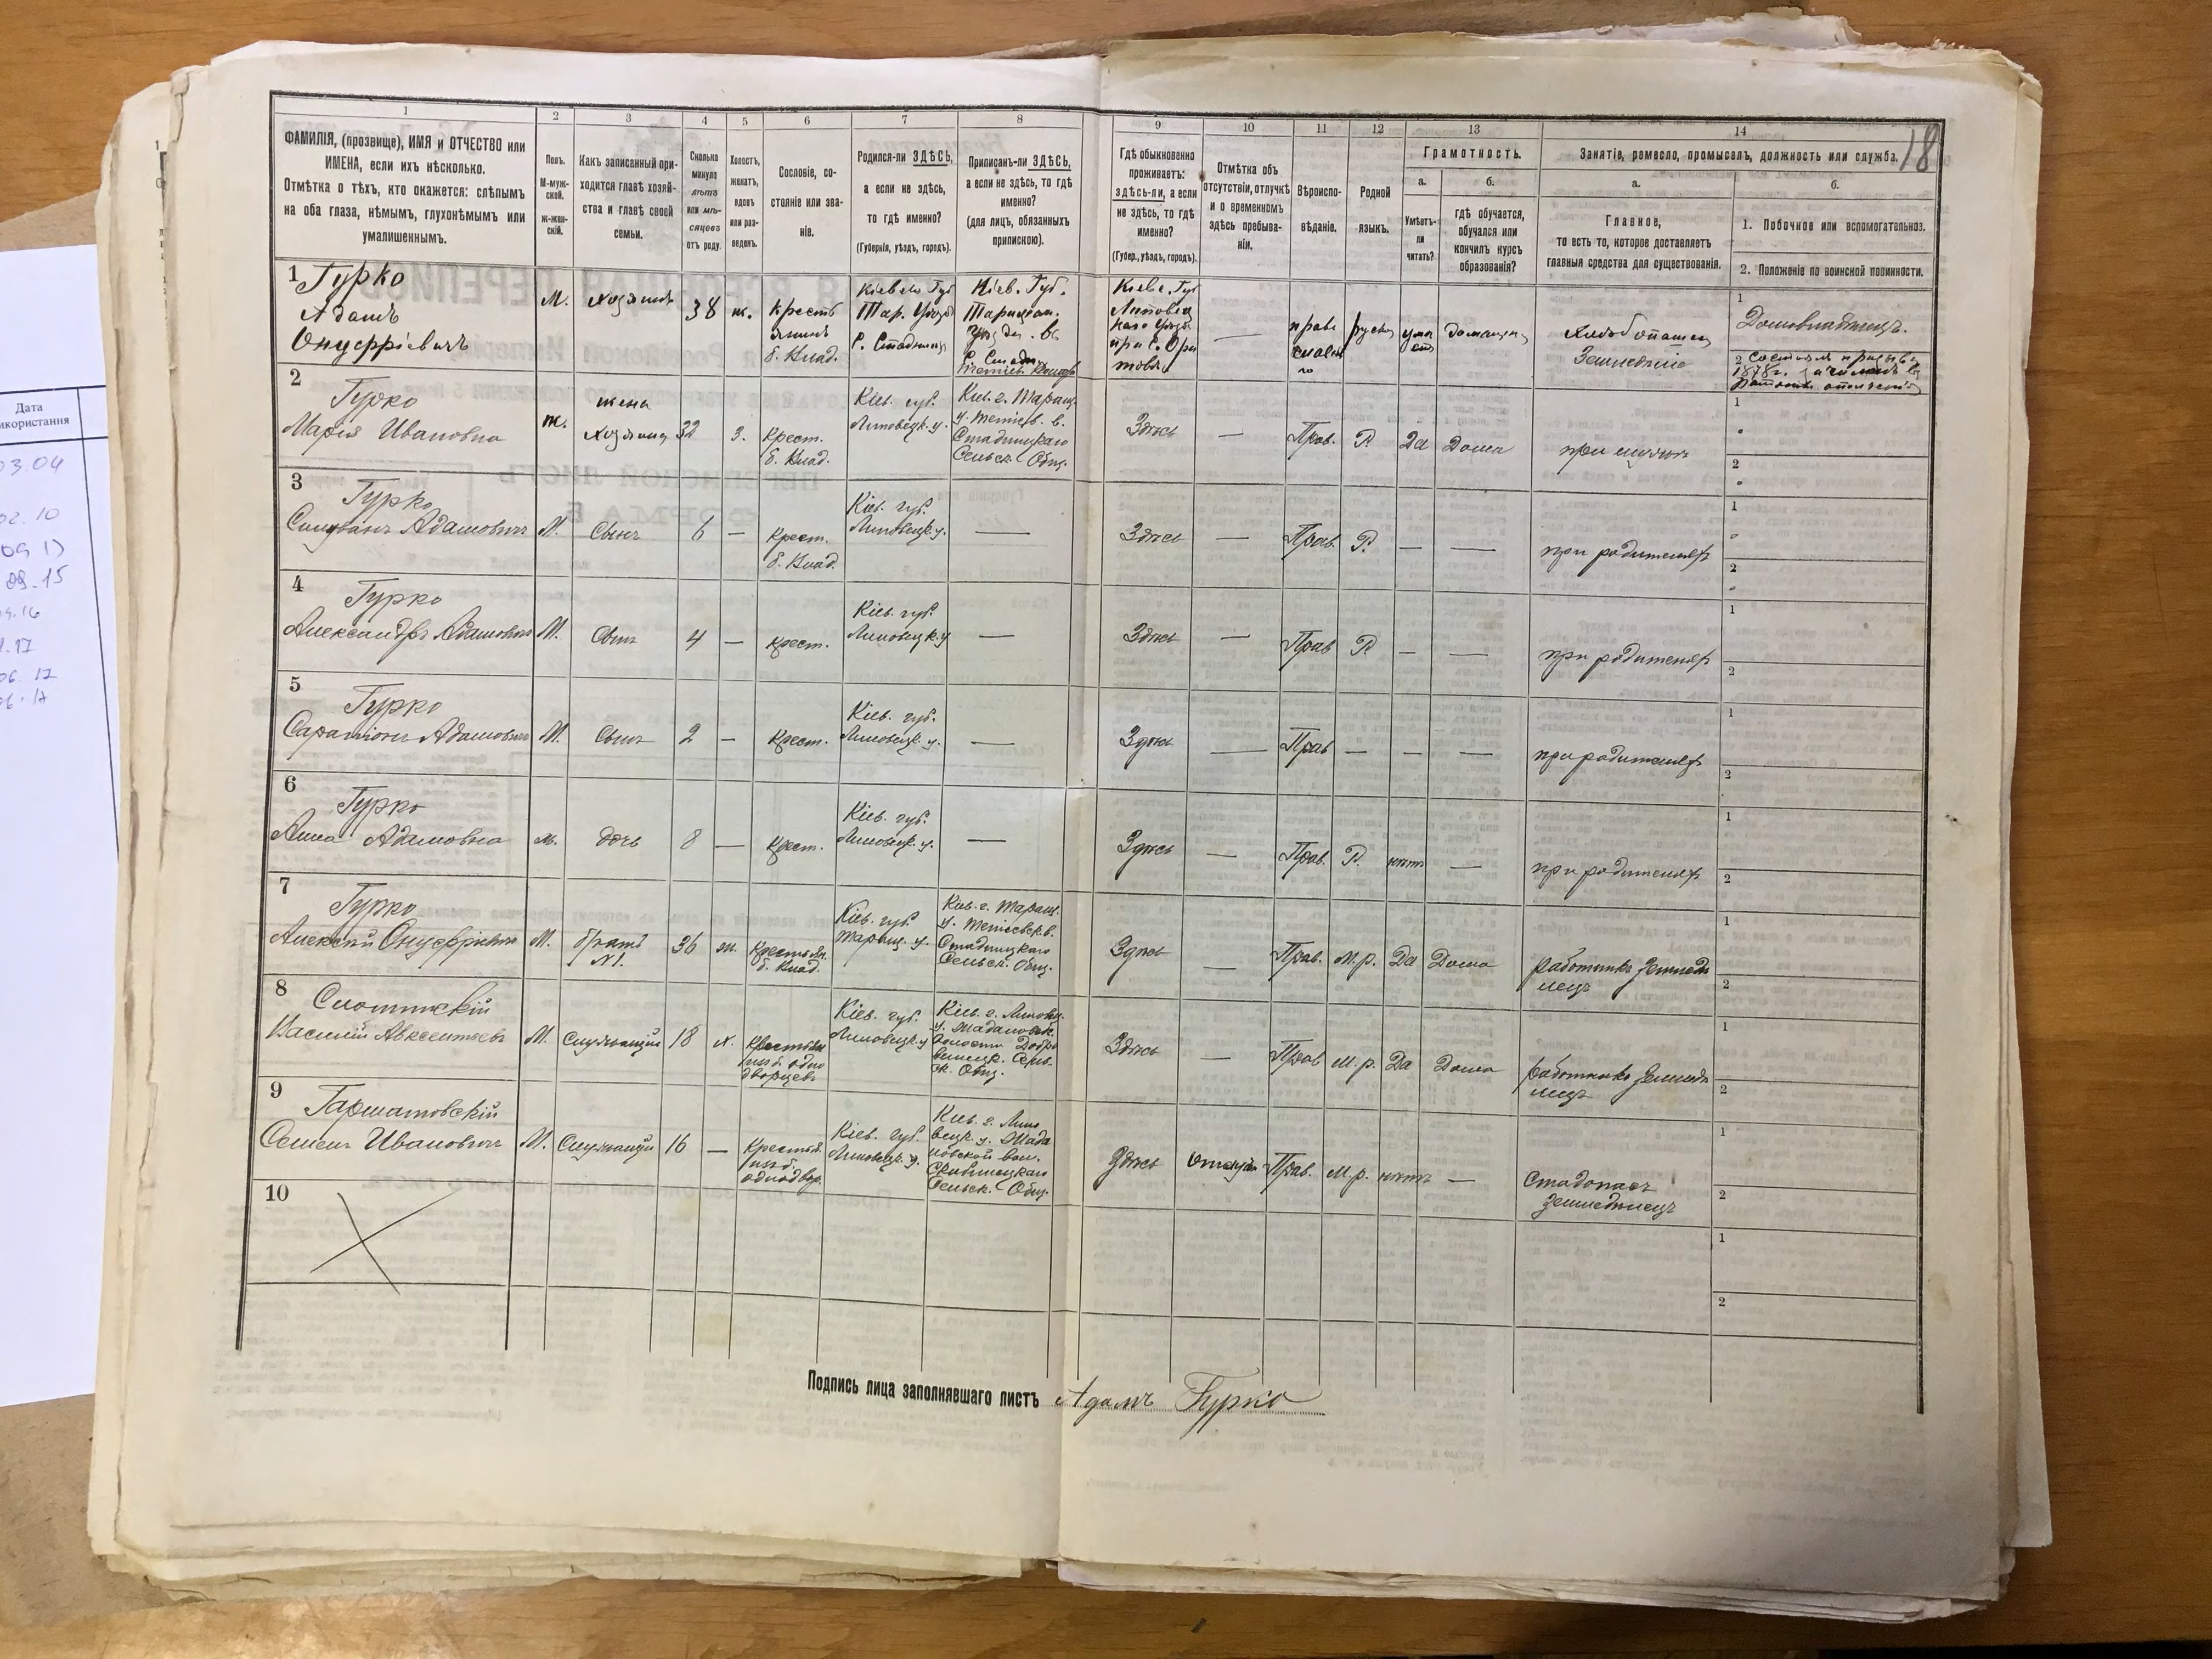 18
1
2
3
4
5
6
7
8
9
10
11
12
13
14
ФАМИЛІЯ, (прозвище), ИМЯ и ОТЧЕСТВО или
ИМЕНА, если ихъ нѣсколько.
Отмѣтка о тѣхъ, кто окажется: слѣпымъ
на оба глаза, нѣмымъ, глухонѣмымъ или
умалишеннымъ.
Полъ.
М-муж-
ской.
ж-жен-
скій.
Какъ записанный при-
ходится главѣ хозяй-
ства и главѣ своей
семьи.
Сколько
минуло
лѣтъ
или мѣ-
сяцевъ
отъ роду.
Холостъ,
женатъ,
вдовъ
или раз-
веденъ.
Сословіе, со-
стояніе или зва-
ніе.
Родился-ли ЗДѢСЬ,
а если не здѣсь,
то гдѣ именно?
(Губернія, уѣздъ, городъ).
Приписанъ-ли ЗДѢСЬ,
а если не здѣсь, то гдѣ
именно?
(для лицъ, обязанныхъ
припискою).
Гдѣ обыкновенно
проживаетъ:
здѣсь-ли, а если
не здѣсь, то гдѣ
именно?
(Губер., уѣздъ, городъ).
Отмѣтка объ
отсутствіи, отлучкѣ
и о временномъ
здѣсь пребыва-
ніи.
Вѣроиспо-
вѣданіе.
Родной
языкъ.
Грамотность.
а.
Умѣетъ-
ли
читать?
б.
гдѣ обучается,
обучался или
кончилъ курсъ
образованія?
Занятіе, ремесло, промыселъ, должность или служба.
а.
Главное,
то есть то, которое доставляетъ
главныя средства для существованія.
б.
1. Побочное или вспомогательное.
2. Положеніе по воинской повинности.
1 Гурко
Адамъ
Онуфріевичъ
М.
хозяинъ
38
ж.
Крестъ
янинъ
б. Влад.
Кіевск. Губ
Тар. Уѣзда
Кіев. Губ.
Таращан.
Кіевс. Губ
Липовец
каго Уѣзд.
—
право
славн
русск
домашн
Хлѣбопашец
Земледѣліе
1
Домовладѣлецъ.
2
1878 г.
2
Гурко
Марія Ивановна
ж.
жена
хозяина
32
з.
Крест.
б. Влад.
Кіев. губ.
Липовецк. у.
Кіев. г. Таращ.
у. Тетіевск. в.
Стадницкаго
Сельск. Общ.
Здѣсь
—
Прав.
Р.
Да
Дома
при мужѣ
1
2
3
Гурко
Адамовичъ
М.
Сынъ
6
—
Крест.
б. Влад.
Кіев. губ.
Липовецк. у.
—
Здѣсь
—
Прав.
Р.
—
—
при родителяхъ
1
2
4
Гурко
Александръ Адамовичъ
М.
Сынъ
4
—
Крест.
Кіев. губ.
Липовецк. у
—
Здѣсь
—
Прав
Р.
—
—
при родителяхъ
1
2
5
Гурко
Сарапіонъ Адамовичъ
М.
Сынъ
2
—
Крест.
Кіев. губ.
Липовецк. у.
—
Здѣсь
—
Прав
—
—
—
при родителяхъ
1
2
6
Гурко
Анна Адамовна
ж.
дочь
8
—
Крест.
Кіев. губ.
Липовецк. у.
—
Здѣсь
—
Прав.
Р.
нѣтъ
—
при родителяхъ
1
2
7
Гурко
Алексѣй Онуфріевичъ
М.
братъ
N1.
36
ж.
Крестьян.
б. Влад.
Кіев. губ.
Таращ. у.
Кіев. г. Таращ.
у. Тетіевск в.
Стадницкаго
Сельск. Общ.
Здѣсь
—
Прав.
М. р.
Да
Дома
работникъ Земледѣ
лецъ
1
2
8
Василій Авксентьевъ
М.
Служащій
18
х.
Крестьян
изъ б. одно
дворцевъ
Кіев. губ.
Липовецк. у
Кіев. г. Липовец.
Здѣсь
—
Прав
М. р.
Да
Дома
работникъ Земледѣ
лецъ
1
2
9
Семенъ Ивановичъ
М.
Служащій
16
—
Крестьян.
изъ б.
однодвор.
Кіев. губ.
Липовецк. у.
Кіев. г. Липо
вецк. у. Жада
новской вол.
Сельск. Общ.
Здѣсь
Прав.
М. р.
нѣтъ
—
Стадопасъ
Земледѣлецъ
1
2
10
1
2
Подпись лица заполнявшаго листъ Адамъ Гурко
Дата
икористання
03.04
02.10
09.15
06.17